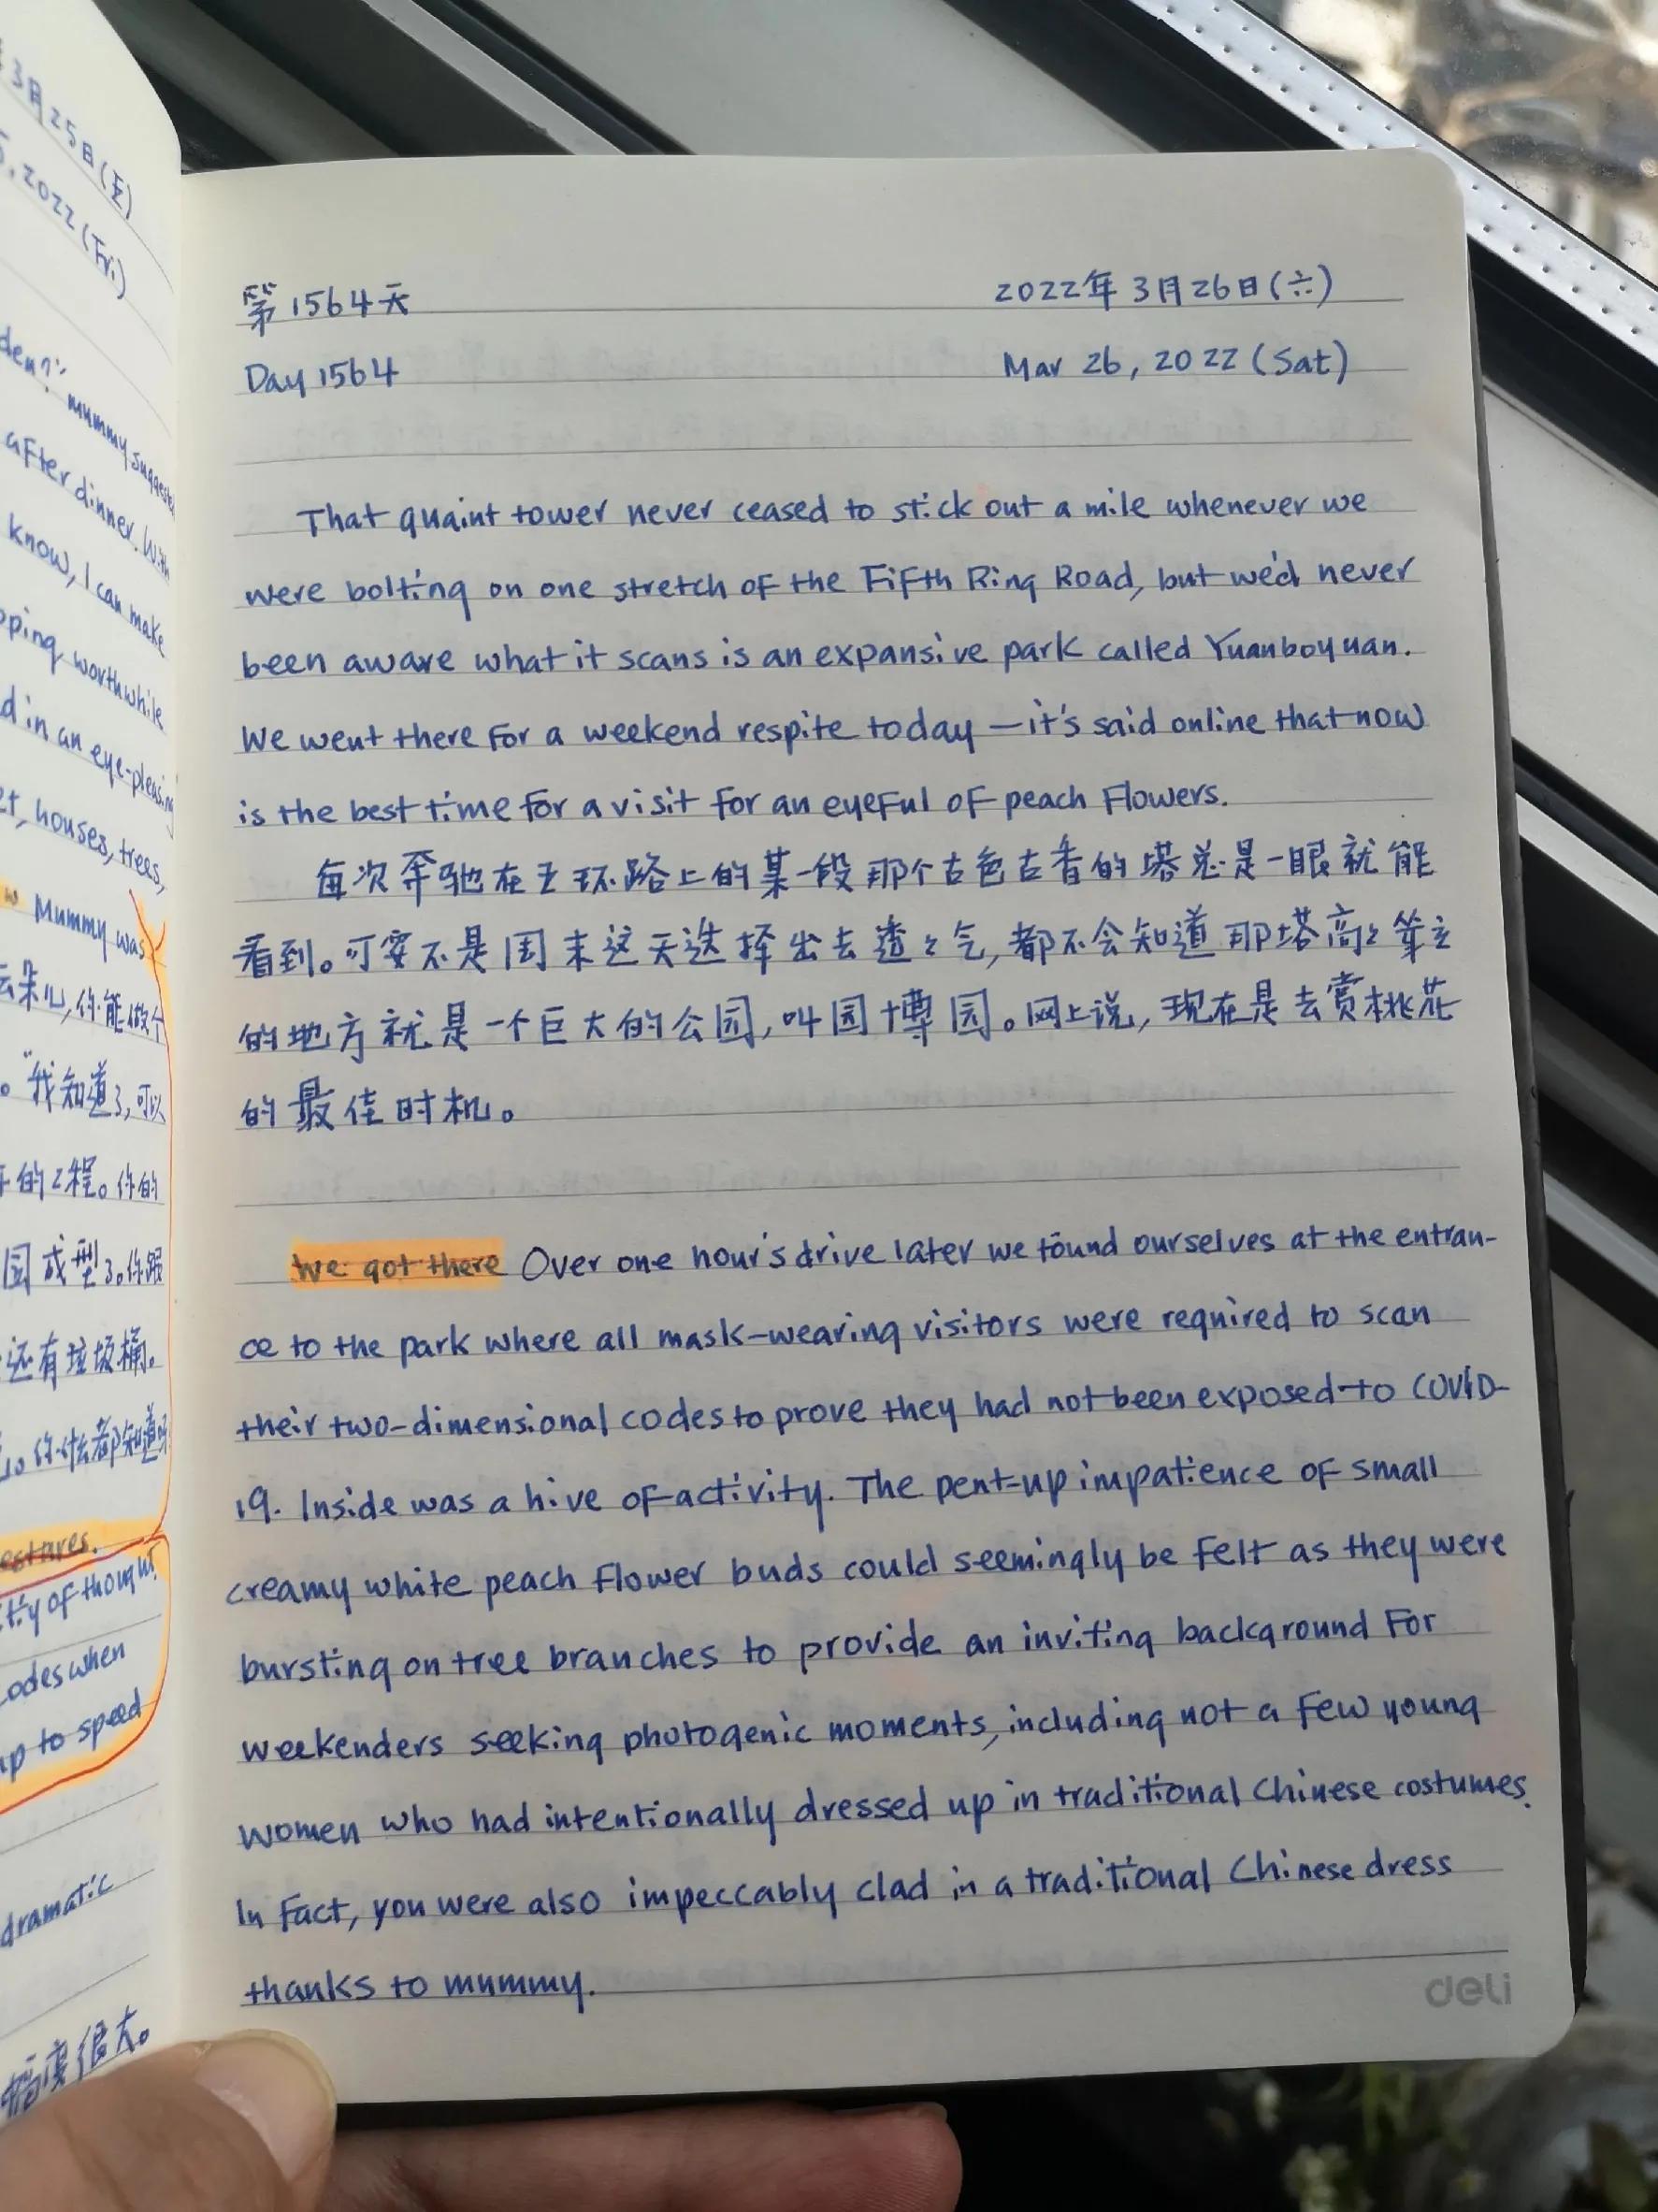 3月25日(五)
, 2022 (Fri)
den?" mummy
after dinner.
know, I can make
worthwhile
d in an eye-pleasing
, houses, trees,
Mummy was
你能做个
。"我知道了,可以
的工程。你的
园成型了。你跟
还有垃圾桶。
你什么都知道
ty of thought
codes when
up to speed
dramatic
幅度很大。
第1564天 2022年3月26日(六)
Day 1564 Mar 26, 2022 (Sat)
That quaint tower never ceased to stick out a mile whenever we
were bolting on one stretch of the Fifth Ring Road, but we'd never
been aware what it scans is an expansive park called Yuanboyuan.
We went there for a weekend respite today — it's said online that now
is the best time for a visit for an eyeful of peach flowers.
每次奔驰在五环路上的某一段那个古色古香的塔总是一眼就能
看到。可要不是周末这天选择出去透透气,都不会知道那塔高高耸立
的地方就是一个巨大的公园,叫园博园。网上说,现在是去赏桃花
的最佳时机。
We got there Over one hour's drive later we found ourselves at the entran-
ce to the park where all mask-wearing visitors were required to scan
their two-dimensional codes to prove they had not been exposed to COVID-
19. Inside was a hive of activity. The pent-up impatience of small
creamy white peach flower buds could seemingly be felt as they were
bursting on tree branches to provide an inviting background for
weekenders seeking photogenic moments, including not a few young
women who had intentionally dressed up in traditional Chinese costumes.
In fact, you were also impeccably clad in a traditional Chinese dress
thanks to mummy.
deli